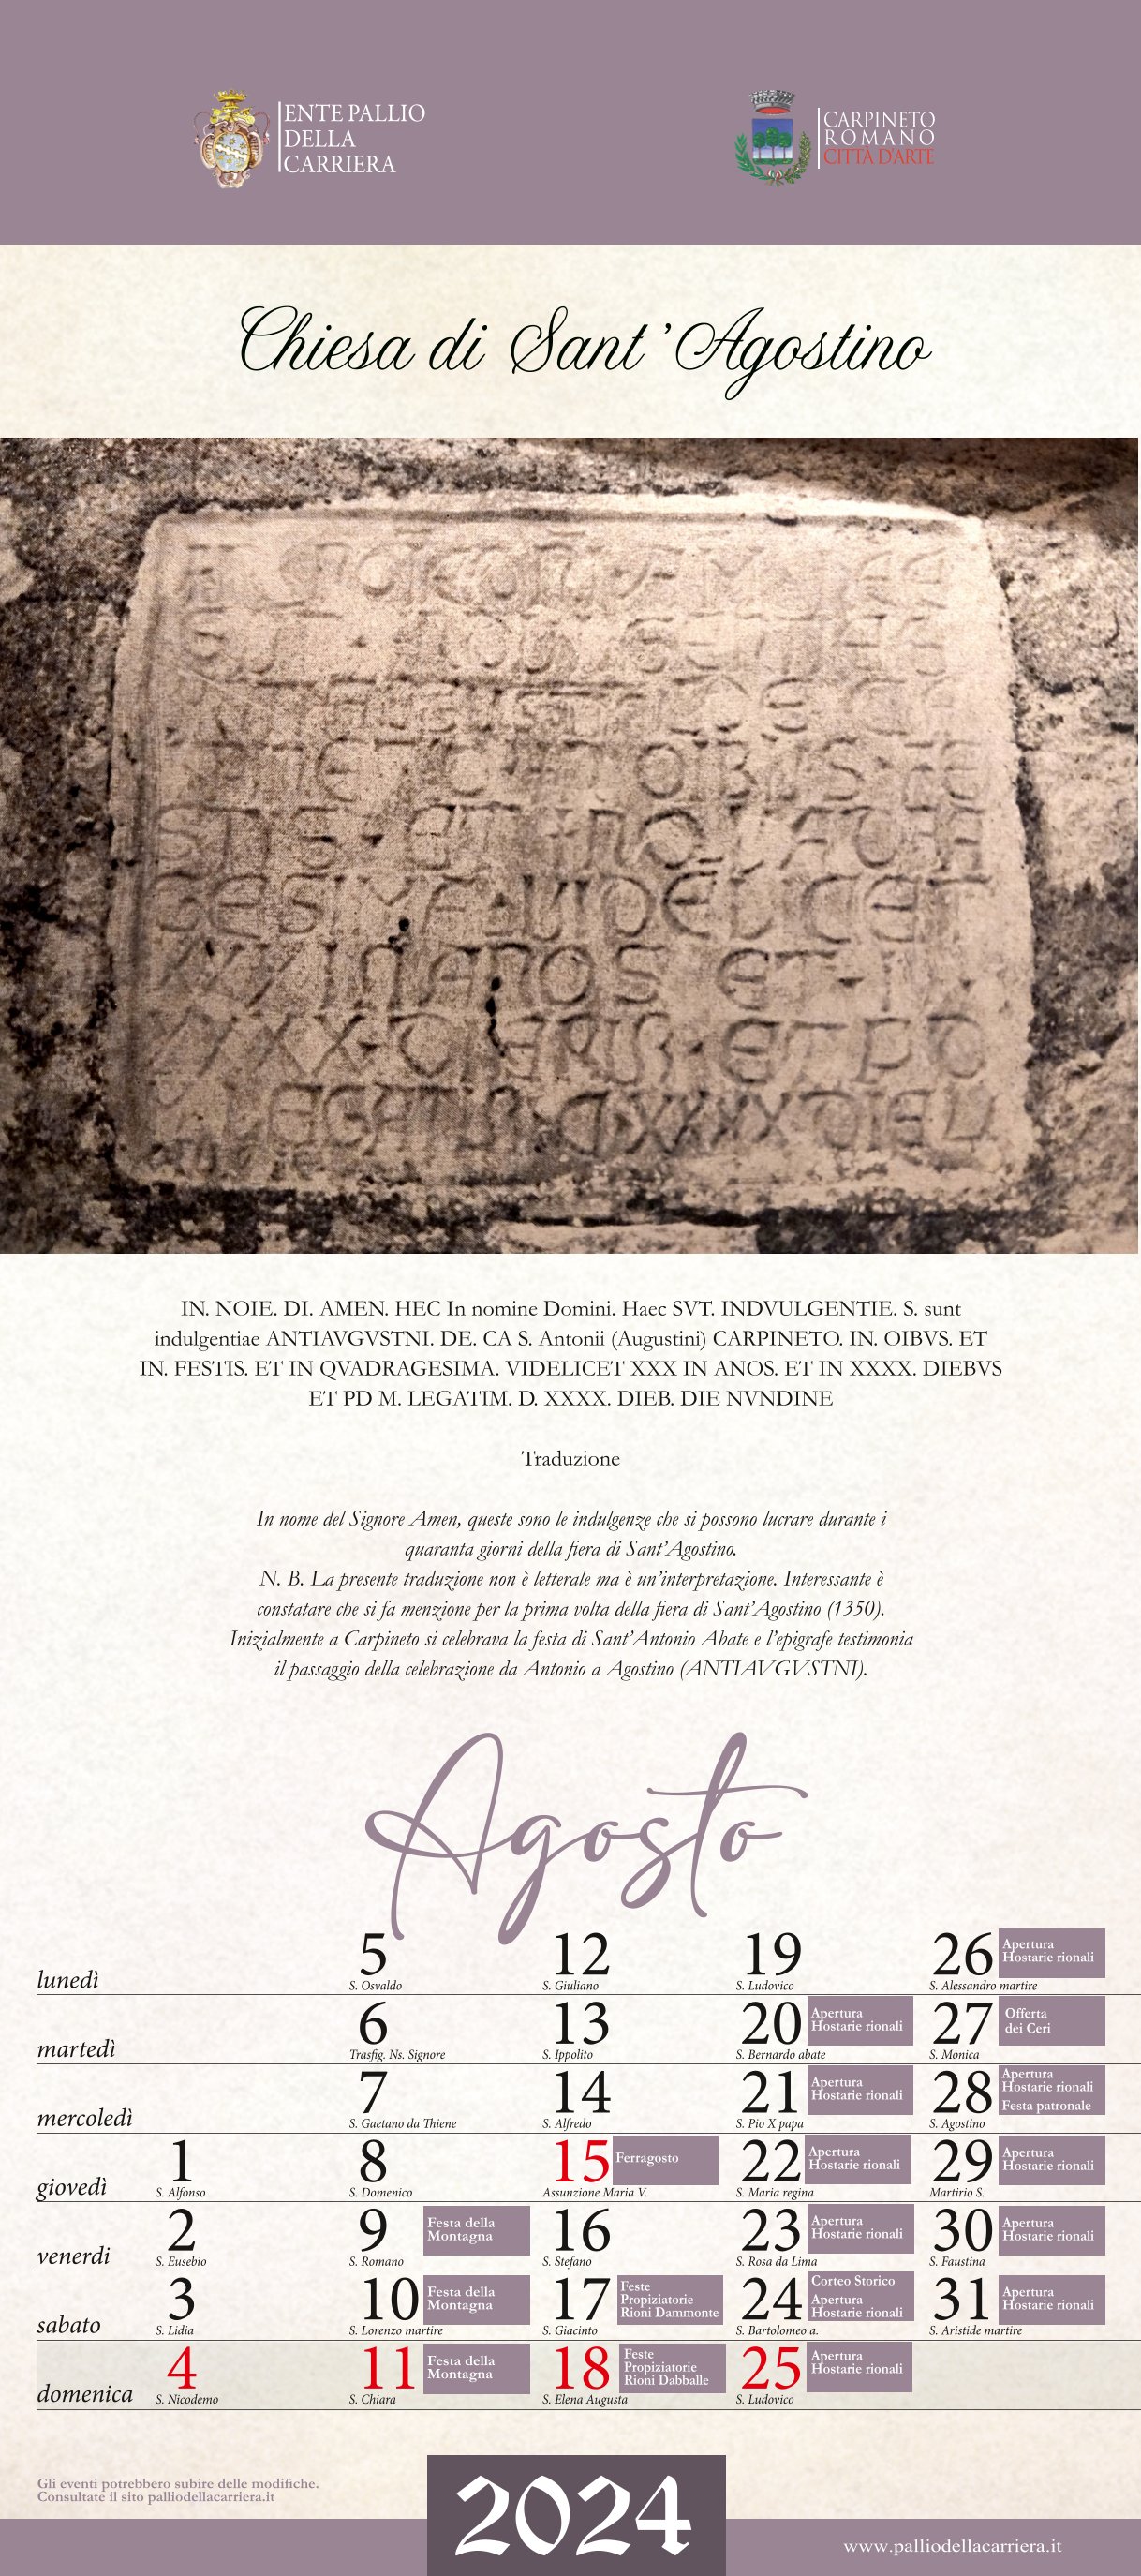 ENTE PALLIO
DELLA
CARRIERA
CARPINETO
ROMANO
CITTA D'ARTE
Chiesa di Sant'Agostino
IN. NOIE. DI. AMEN. HEC In nomine Domini. Haec SVT. INDVULGENTIE. S. sunt
indulgentiae ANTIAVGVSTNI. DE. CA S. Antonii (Augustini) CARPINETO. IN. OIBVS. ET
IN. FESTIS. ET IN QVADRAGESIMA. VIDELICET XXX IN ANOS. ET IN XXXX. DIEBVS
ET PD M. LEGATIM. D. XXXX. DIEB. DIE NVNDINE
Traduzione
In nome del Signore Amen, queste sono le indulgenze che si possono lucrare durante i
quaranta giorni della fiera di Sant'Agostino.
N. B. La presente traduzione non è letterale ma è un'interpretazione. Interessante è
constatare che si fa menzione per la prima volta della fiera di Sant'Agostino (1350).
Inizialmente a Carpineto si celebrava la festa di Sant'Antonio Abate e l'epigrafe testimonia
il passaggio della celebrazione da Antonio a Agostino (ANTIAVGVSTNI).
Agosto
lunedì
5
S. Osvaldo
12
S. Giuliano
19
S. Ludovico
26
Apertura
Hostarie rionali
S. Alessandro martire
martedì
6
Trasfig. Ns. Signore
13
S. Ippolito
20
Apertura
Hostarie rionali
S. Bernardo abate
27
Offerta
dei Ceri
S. Monica
mercoledì
7
S. Gaetano da Thiene
14
S. Alfredo
21
Apertura
Hostarie rionali
S. Pio X papa
28
Apertura
Hostarie rionali
Festa patronale
S. Agostino
giovedì
1
S. Alfonso
8
S. Domenico
15
Ferragosto
Assunzione Maria V.
22
Apertura
Hostarie rionali
S. Maria regina
29
Apertura
Hostarie rionali
Martirio S.
venerdi
2
S. Eusebio
9
Festa della
Montagna
S. Romano
16
S. Stefano
23
Apertura
Hostarie rionali
S. Rosa da Lima
30
Apertura
Hostarie rionali
S. Faustina
sabato
3
S. Lidia
10
Festa della
Montagna
S. Lorenzo martire
17
Feste
Propiziatorie
Rioni Dammonte
S. Giacinto
24
Corteo Storico
Apertura
Hostarie rionali
S. Bartolomeo a.
31
Apertura
Hostarie rionali
S. Aristide martire
domenica
4
S. Nicodemo
11
Festa della
Montagna
S. Chiara
18
Feste
Propiziatorie
Rioni Dabballe
S. Elena Augusta
25
Apertura
Hostarie rionali
S. Ludovico
Gli eventi potrebbero subire delle modifiche.
Consultate il sito palliodellacarriera.it
2024
www.palliodellacarriera.it